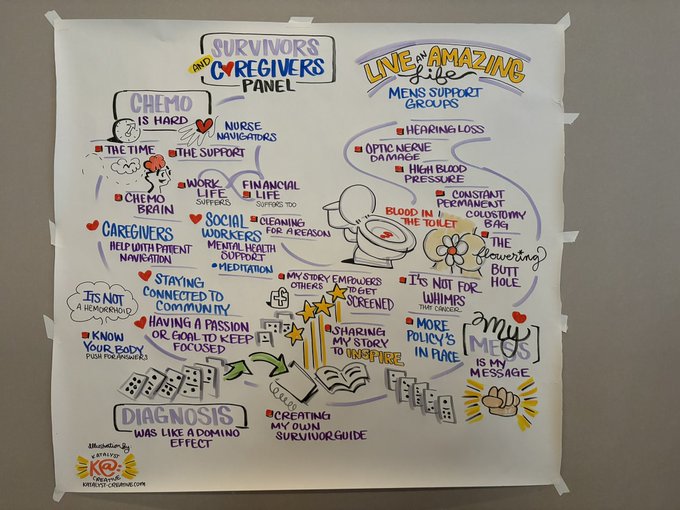 SURVIVORS
AND CAREGIVERS
PANEL
LIVE AN AMAZING
Life
MENS SUPPORT
GROUPS
CHEMO
IS HARD
NURSE
NAVIGATORS
THE TIME
THE SUPPORT
CHEMO
BRAIN
WORK
LIFE
SUFFERS
FINANCIAL
LIFE
SUFFERS TOO
CAREGIVERS
HELP WITH PATIENT
NAVIGATION
SOCIAL
WORKERS
MENTAL HEALTH
SUPPORT
• MEDITATION
CLEANING
FOR A REASON
HEARING LOSS
OPTIC NERVE
DAMAGE
HIGH BLOOD
PRESSURE
CONSTANT
PERMANENT
COLUSTOMY
BAG
BLOOD IN
THE TOILET
THE
flowering
BUTT
HOLE
STAYING
CONNECTED TO
COMMUNITY
MY STORY EMPOWERS
OTHERS TO GET
SCREENED
IT'S NOT FOR
WHIMPS
THAT CANCER
ITS NOT
A HEMORRHOID
KNOW
YOUR BODY
PUSH FOR ANSWERS
HAVING A PASSION
OR GOAL TO KEEP
FOCUSED
SHARING
MY STORY
TO INSPIRE
MORE
POLICY'S
IN PLACE
My
MESS
IS MY
MESSAGE
DIAGNOSIS
WAS LIKE A DOMINO
EFFECT
CREATING
MY OWN
SURVIVOR GUIDE
Illustration By
KATALYST
K@:
CREATIVE
KATALYST-CREATIVE.COM